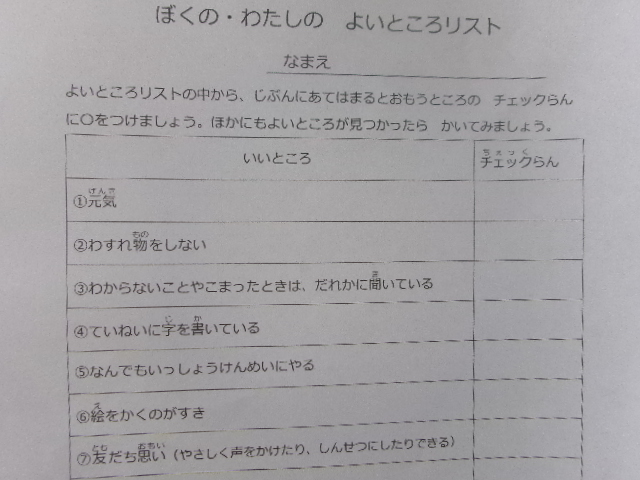 ぼくの・わたしの よいところリスト
なまえ
よいところリストの中から、じぶんにあてはまるとおもうところの チェックらん
に○をつけましょう。ほかにもよいところが見つかったら かいてみましょう。
いいところ ちぇっく チェックらん
げんき
①元気
もの
②わすれ物をしない
き
③わからないことやこまったときは、だれかに聞いている
じ か
④ていねいに字を書いている
⑤なんでもいっしょうけんめいにやる
え
⑥絵をかくのがすき
とも おもい
⑦友だち思い（やさしく声をかけたり、しんせつにしたりできる）